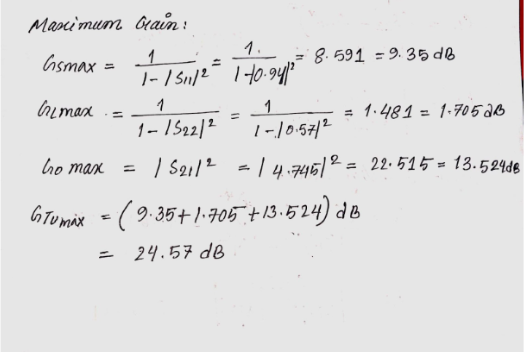 Maximum Gain:
GSmax = 1 / 1-|S11|² = 1. / 1-|0.94|² = 8.591 = 9.35 dB
GLmax = 1 / 1-|S22|² = 1 / 1-|0.57|² = 1.481 = 1.705 dB
Go max = |S21|² = |4.745|² = 22.515 = 13.524dB
GTUmax = (9.35+1.705+13.524) dB
= 24.57 dB